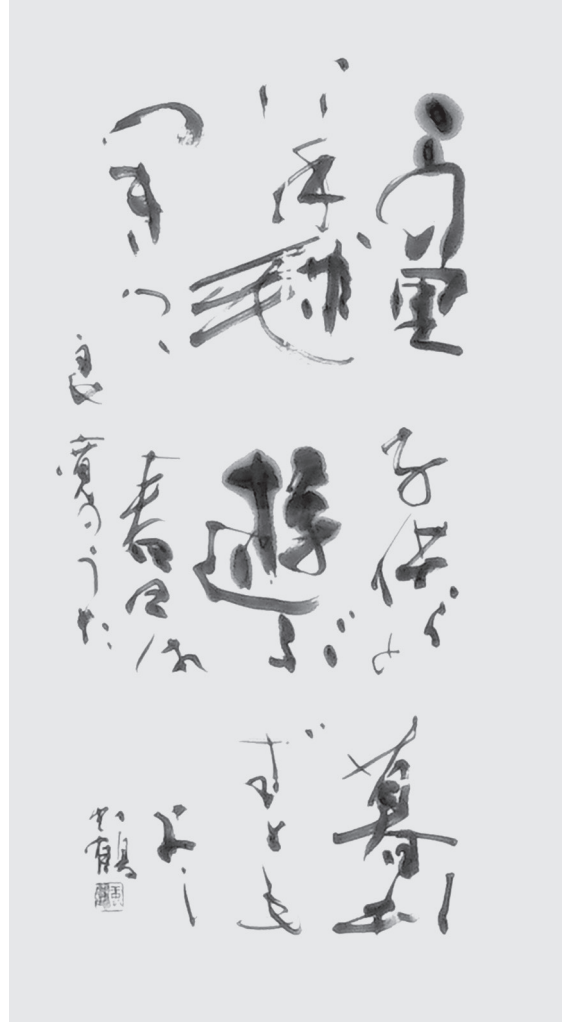 この里
に手毬
つきつつ
子供らと
遊ぶ
春日は
暮れ
ずとも
よし
良寛のうた
鶴